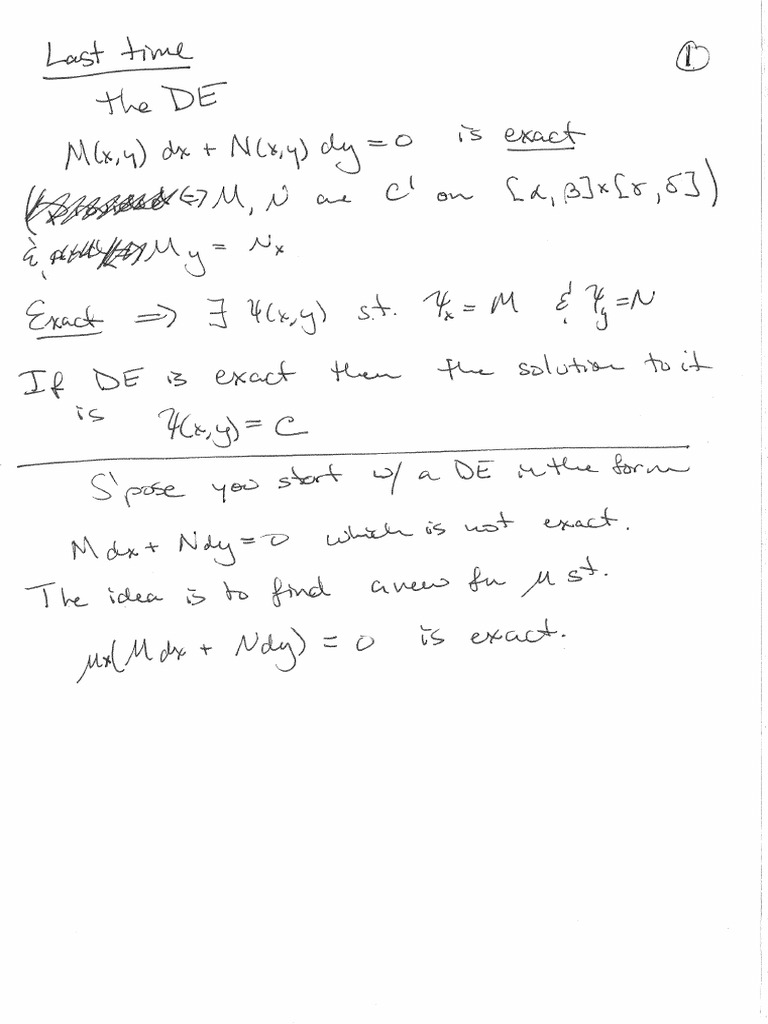 Last time
①
the DE
M(x,y) dx + N(x,y) dy = 0 is exact
(⇔ M, N are C¹ on [α,β]×[γ,δ])
& M_y = N_x
Exact ⇒ ∃ Ψ(x,y) s.t. Ψ_x = M & Ψ_y = N
If DE is exact then the solution to it
is Ψ(x,y) = C
S'pose you start w/ a DE in the form
M dx + N dy = 0 which is not exact.
The idea is to find a new fn μ st.
μx(M dx + N dy) = 0 is exact.